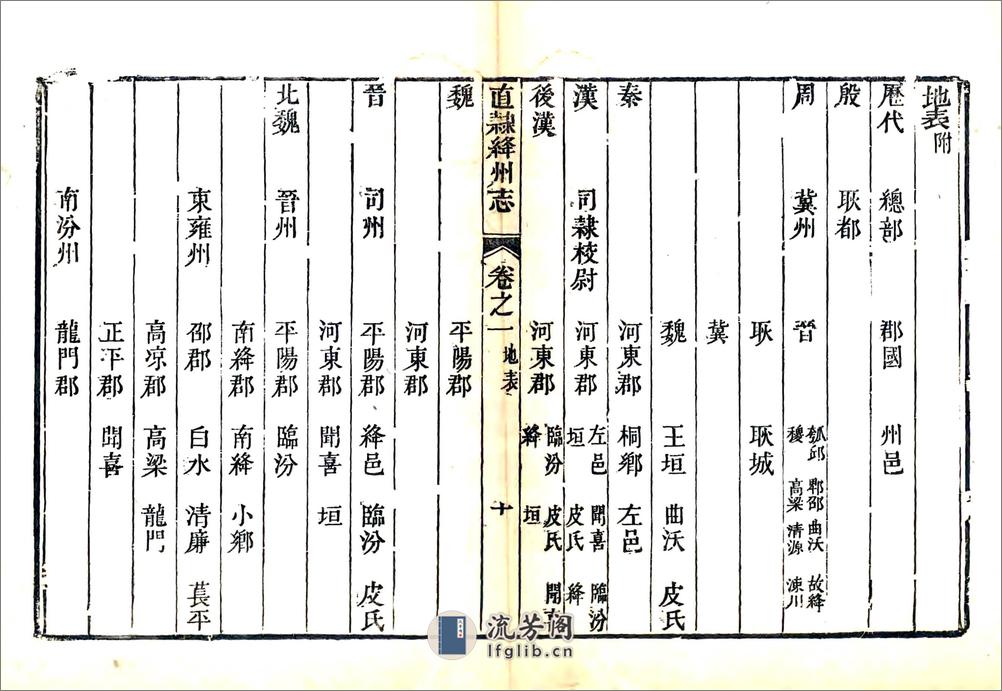 地表附
歷代 總部 郡國 州邑
殷 耿都
周 冀州 晉 瓠邱 鄈郚 曲沃 故絳 稷 高梁 清源 涑川
耿 耿城
冀
魏 王垣 曲沃 皮氏
秦 河東郡 桐鄉 左邑
漢 司隸校尉 河東郡 左邑 聞喜 臨汾 垣 皮氏 絳
後漢 河東郡 臨汾 皮氏 聞喜 絳 垣
直隸絳州志 卷之一 地表 十
魏 平陽郡
河東郡
晉 司州 平陽郡 絳邑 臨汾 皮氏
河東郡 聞喜 垣
北魏 晉州 平陽郡 臨汾
南絳郡 南絳 小鄉
東雍州 邵郡 白水 清廉 萇平
高凉郡 高梁 龍門
正平郡 聞喜
南汾州 龍門郡
流芳阁
lfglib.cn